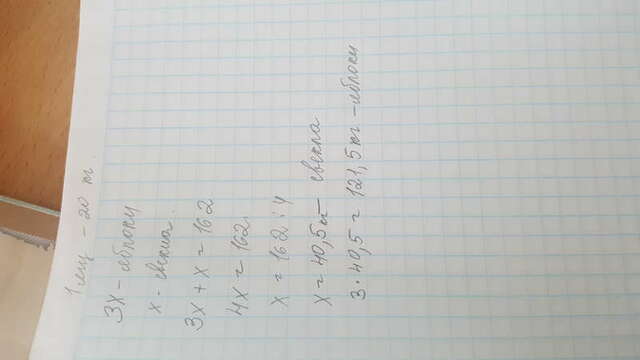 1 ящ - 20 кг
3x - яблоки
x - свекла.
3x + x = 162
4x = 162.
x = 162 : 4
x = 40,5 кг - свекла
3 · 40,5 = 121,5 кг - яблоки